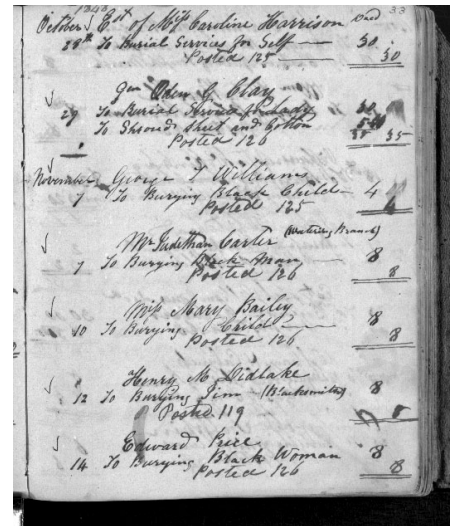 1840 33
October Est of Miss Caroline Harrison Paid
28th To Burial Services for Self 30.
Posted 125 30
Green Clay
29 To Burial Service for Lady 30
To Shroud Sheet and Cotton 5
Posted 126 35 35
November George T Williams
7 To Burying Black Child 4
Posted 125 4
Mr Judethan Carter (Watering Branch)
7 To Burying Black Man 8
Posted 126 8
Miss Mary Bailey
10 To Burying Child 8
Posted 126 8
Henry M Didlake
12 To Burying Jim (Blacksmith) 8
Posted 119 8
Edward Price
14 To Burying Black Woman 8
Posted 126 8